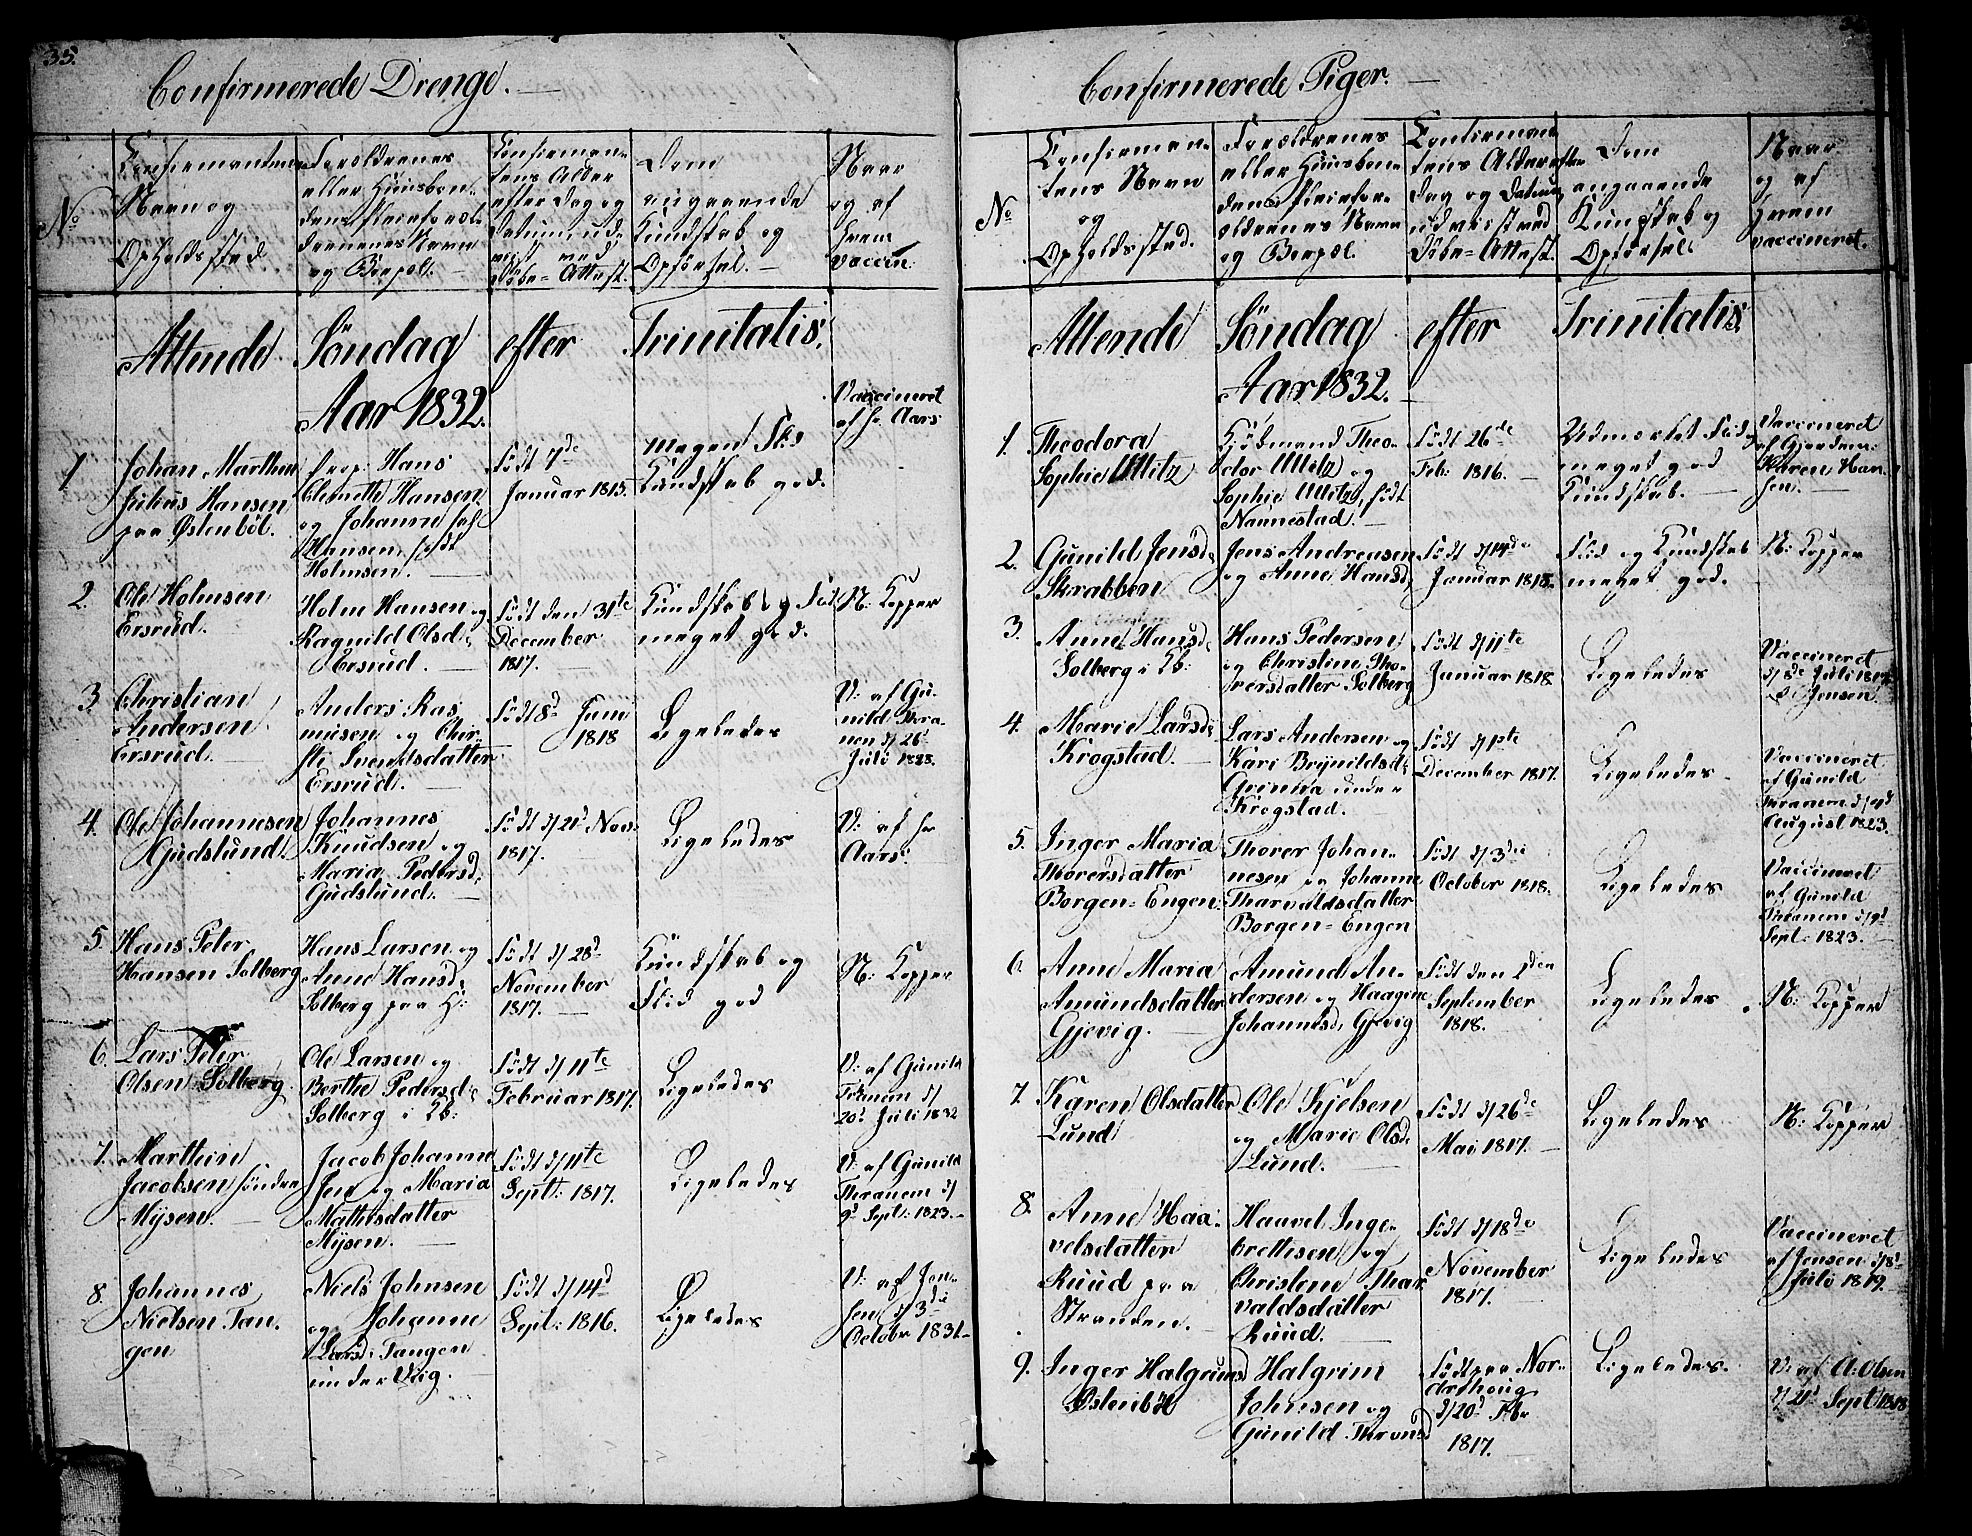 35.
Confirmerede Drenge.
No
Confirmantens
Navn og
Opholdssted.
Forældrenes
eller Huusbon-
dens Pleieforæl-
drenes Navn
og Bopæl.
Confirman-
tens Alder
efter Dag og
Datum, ud-
viist med
Døbe-Attest.
Dom
angaaende
Kundskab og
Opførsel.
Naar
og af
hvem
vaccin:
Attende Söndag efter Trinitatis.
Aar 1832.
1
Johan Marthin
Julius Hansen
paa Østenböl.
Prop. Hans
Clemette Hansen
og Johanne
Hansen, født
Holmsen.
Födt 7de
Januar 1815.
megen Flid
Kundskab god.
Vaccineret
af Hr Aars
2.
Ole Holmsen
Ersrud.
Holm Hansen og
Ragnild Olsd:
Ersrud.
Födt den 31te
December
1817.
Kundskab og Flid
meget god.
N: Kopper
3.
Christian
Andersen
Ersrud.
Anders Ras
musen og Chir
sti Svendsdatter
Ersrud.
Födt 8d Juni
1818
Ligeledes
V: af Gu-
nild Thra-
nem d/ 26d
Juli 1823.
4.
Ole Johannesen
Gudslund
Johannes
Knudsen og
Maria Pedersd.
Gudslund.
Födt d/ 21d Nov.
1817.
Ligeledes
V: af Hr
Aars
5.
Hans Peter
Hansen Solberg
Hans Larsen og
Anne Hansd.
Solberg paa H:
Födt d/ 28d
November
1817.
Kundskab og
Flid god
N: Kopper
6.
Lars Peter
Olsen Solberg
Ole Larsen og
Berthe Pedersd:
Solberg i Kb:
Födt d/ 11te
Februar 1817.
Ligeledes
V: af Gunild
Thranem d/
20d Juli 1832
7.
Marthin
Jacobsen Söndre
Mÿsen.
Jacob Johanne
sen og Maria
Mathisdatter
Mÿsen.
Födt d/ 11te
Sept: 1817.
Ligeledes
V: af Gunild
Thranem d/
9d Sept: 1823.
8.
Johannes
Nielsen Tan-
gen
Niels Johnsen
og Johanne
Larsd: Tangen
under Viig.
Födt d/ 14d
Sept: 1816.
Ligeledes
V: af Jen-
sen d/ 3die
Octobr 1831
Confirmerede Piger.
No
Confirman-
tens Navn
og
Opholdssted.
Forældrenes
eller Huusbon-
dens Pleiefor-
ældrenes Navn
og Bopæl.
Confirman-
tens Alder efter
Dag og Datum,
udviist med
Döbe-Attest.
Dom
angaaende
Kundskab og
Opførsel.
Naar
og af
hvem
vaccineret.
Attende Söndag efter Trinitatis.
Aar 1832.
1.
Theodora
Sophie Ullitz
Kjöbmand Theo-
dor Ullitz og
Sophie Ullitz, født
Nannestad.
Födt 26de
Feb: 1816.
Udmærket Flid,
meget god
Kundskab.
Vaccineret
af Gjordem:
Karen Han-
sen.
2.
Gunild Jensd:
Skrabben
Jens Andreasen
og Anne Hansd,
Födt d/ 14de
Januar 1818.
Flid og Kundskab
meget god.
N: Kopper
3.
Anne Hansd:
Solberg i Kb:
Hans Pedersen
og Christine Tho-
rersdatter Solberg
Födt d/ 11te
Januar 1818
Ligeledes
Vaccineret
d/ 8de Juli 1819
Jensen
4.
Marie Larsd:
Krogstad.
Lars Andersen og
Kari Brynildsd:
under
Krogstad.
Födt d/ 1ste
December 1817.
Ligeledes
Vaccineret
af Gunild
Thranem d/ 4d
August 1823.
5.
Inger Maria
Thorersdatter
Borgen-Engen
Thorer Johan-
nesen og Johanne
Tharvaldsdatter
Borgen-Engen
Födt d/ 3die
October 1818.
Ligeledes
Vaccineret
af Gunild
Thranem d/ 9d
Sept: 1823.
6.
Anne Maria
Amundsdatter
Gjevig.
Amund An-
dersen og Haagine
Johannesd, Gjevig
Födt den 1den
September
1818.
Ligeledes
N: Kopper
7.
Karen Olsdatter
Lund
Ole Kjelsen
og Marie Olsd:
Lund.
Födt d/ 26de
Mai 1817.
Ligeledes
N: Kopper
8.
Anne Haa-
velsdatter
Ruud paa
Stranden.
Haavel Inge-
brettesen og
Christene Thar
valdsdatter
Ruud.
Födt d/ 18de
November
1817.
Ligeledes
Vaccineret
af Jensen d/ 8d
Juli 1819.
9.
Inger Halgrimsd
Østenböl
Halgrim
Johnsen og
Gunild Thronds
Födt paa Nor-
derhoug
d/ 20d Febr
1817.
Ligeledes.
V: af A: Olsen
d/ 21d Sept 1818